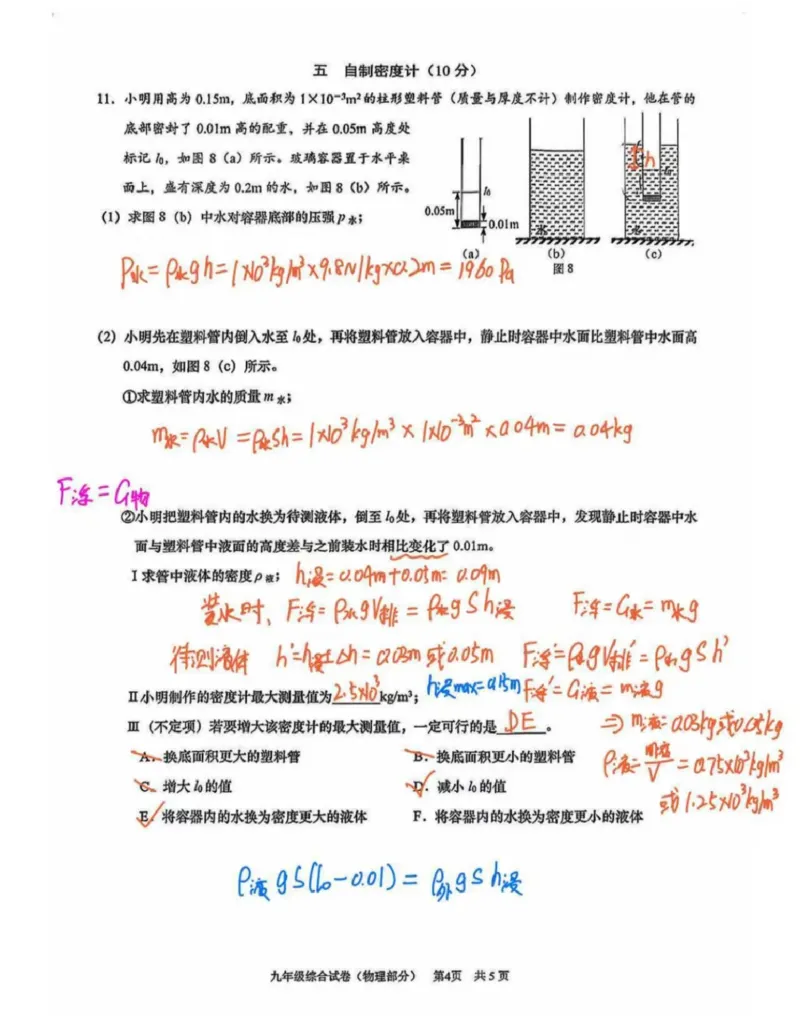 五 自制密度计（10分）
11．小明用高为 0.15m，底面积为 1×10⁻³m² 的柱形塑料管（质量与厚度不计）制作密度计，他在管的
底部密封了 0.01m 高的配重，并在 0.05m 高度处
标记 l₀，如图 8（a）所示。玻璃容器置于水平桌
面上，盛有深度为 0.2m 的水，如图 8（b）所示。
（1）求图 8（b）中水对容器底部的压强 p水；
l₀
0.05m
0.01m
水
h
l₀
水
（a）
（b）
（c）
图 8
P水=ρ水gh=1×10³kg/m³×9.8N/kg×0.2m=1960Pa
（2）小明先在塑料管内倒入水至 l₀处，再将塑料管放入容器中，静止时容器中水面比塑料管中水面高
0.04m，如图 8（c）所示。
①求塑料管内水的质量 m水；
m水=ρ水V=ρ水Sh=1×10³kg/m³×1×10⁻³m²×0.04m=0.04kg
F浮=G物
②小明把塑料管内的水换为待测液体，倒至 l₀处，再将塑料管放入容器中，发现静止时容器中水
面与塑料管中液面的高度差与之前装水时相比变化了 0.01m。
Ⅰ求管中液体的密度ρ液；
h浸=0.04m+0.05m=0.09m
装水时，F浮=ρ水gV排=ρ水gSh浸 F浮=G水=m水g
待测液体 h'=h±Δh=0.03m或0.05m F浮'=ρ水gV排'=ρ水gSh'
Ⅱ小明制作的密度计最大测量值为2.5×10³kg/m³；
h浸max=0.15m
F浮'=G液=m液g
Ⅲ（不定项）若要增大该密度计的最大测量值，一定可行的是DE。
⇒m液=0.03kg或0.05kg
A．换底面积更大的塑料管 B．换底面积更小的塑料管
ρ液=m液/V=0.75×10³kg/m³
C．增大 l₀的值 D．减小 l₀的值
或1.25×10³kg/m³
E．将容器内的水换为密度更大的液体 F．将容器内的水换为密度更小的液体
ρ液gS(l₀-0.01)=ρ外gSh浸
九年级综合试卷（物理部分） 第4页 共5页